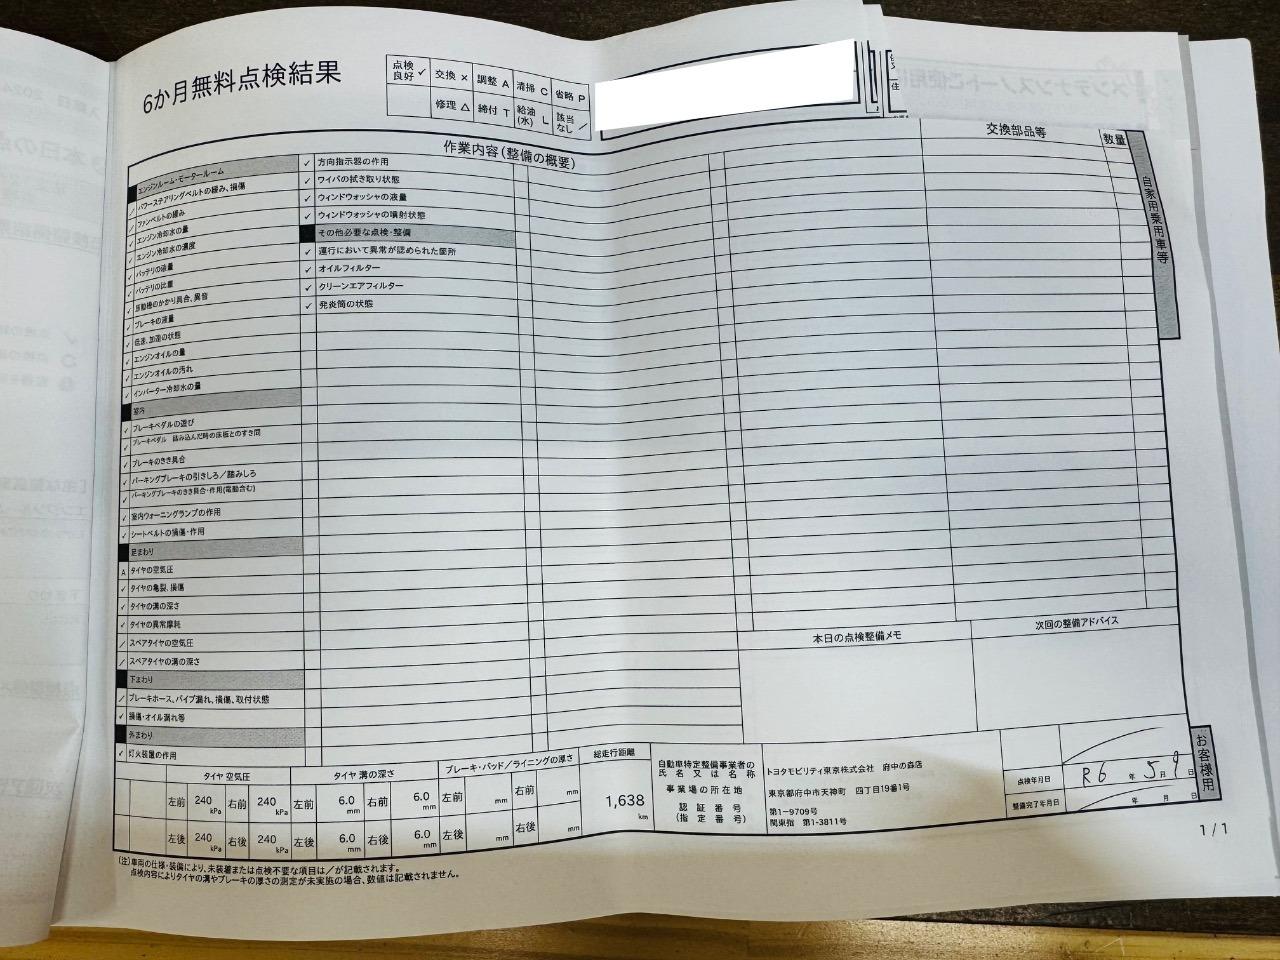 6か月無料点検結果
点検良好 ✓ 交換 × 調整 A 清掃 C 省略 P
修理 △ 締付 T 給油(水) L 該当なし /
作業内容(整備の概要)
交換部品等
数量
自家用乗用車等
エンジンルーム・モータールーム
/ パワーステアリングベルトの緩み、損傷
/ ファンベルトの緩み
✓ エンジン冷却水の量
✓ エンジン冷却水の濃度
✓ バッテリの液量
✓ バッテリの比重
✓ 原動機のかかり具合、異音
✓ ブレーキの液量
✓ 低速、加速の状態
✓ エンジンオイルの量
✓ エンジンオイルの汚れ
✓ インバーター冷却水の量
室内
✓ ブレーキペダルの遊び
✓ ブレーキペダル 踏み込んだ時の床板とのすき間
✓ ブレーキのきき具合
✓ パーキングブレーキの引きしろ/踏みしろ
✓ パーキングブレーキのきき具合・作用(電動含む)
✓ 室内ウォーニングランプの作用
✓ シートベルトの損傷・作用
足まわり
A タイヤの空気圧
✓ タイヤの亀裂、損傷
✓ タイヤの溝の深さ
✓ タイヤの異常摩耗
/ スペアタイヤの空気圧
/ スペアタイヤの溝の深さ
下まわり
/ ブレーキホース、パイプ漏れ、損傷、取付状態
✓ 損傷・オイル漏れ等
外まわり
✓ 灯火装置の作用
✓ 方向指示器の作用
✓ ワイパの拭き取り状態
✓ ウィンドウォッシャの液量
✓ ウィンドウォッシャの噴射状態
その他必要な点検・整備
✓ 運行において異常が認められた箇所
✓ オイルフィルター
✓ クリーンエアフィルター
✓ 発炎筒の状態
本日の点検整備メモ
次回の整備アドバイス
タイヤ 空気圧
タイヤ 溝の深さ
ブレーキ・パッド/ライニングの厚さ
総走行距離
左前 240 kPa 右前 240 kPa 左前 6.0 mm 右前 6.0 mm 左前 mm 右前 mm
左後 240 kPa 右後 240 kPa 左後 6.0 mm 右後 6.0 mm 左後 mm 右後 mm
1,638 km
自動車特定整備事業者の氏名又は名称
トヨタモビリティ東京株式会社 府中の森店
事業場の所在地
東京都府中市天神町 四丁目19番1号
認証番号
(指定番号)
第1-9709号
関東指 第1-3811号
点検年月日 R6年 5月 9日
整備完了年月日 年 月 日
お客様用
(注)車両の仕様・装備により、未装着または点検不要な項目は/が記載されます。
点検内容によりタイヤの溝やブレーキの厚さの測定が未実施の場合、数値は記載されません。
1/1